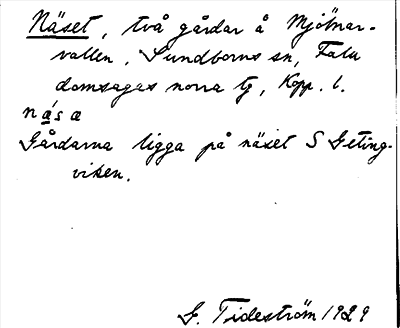 Näset, två gårdar å Mjölnar-
vallen, Sundborns sn, Falu
domsagas norra tg, Kopp. l.
nása
Gårdarna ligga på näset S Geting-
viken.
G. Tideström 1929